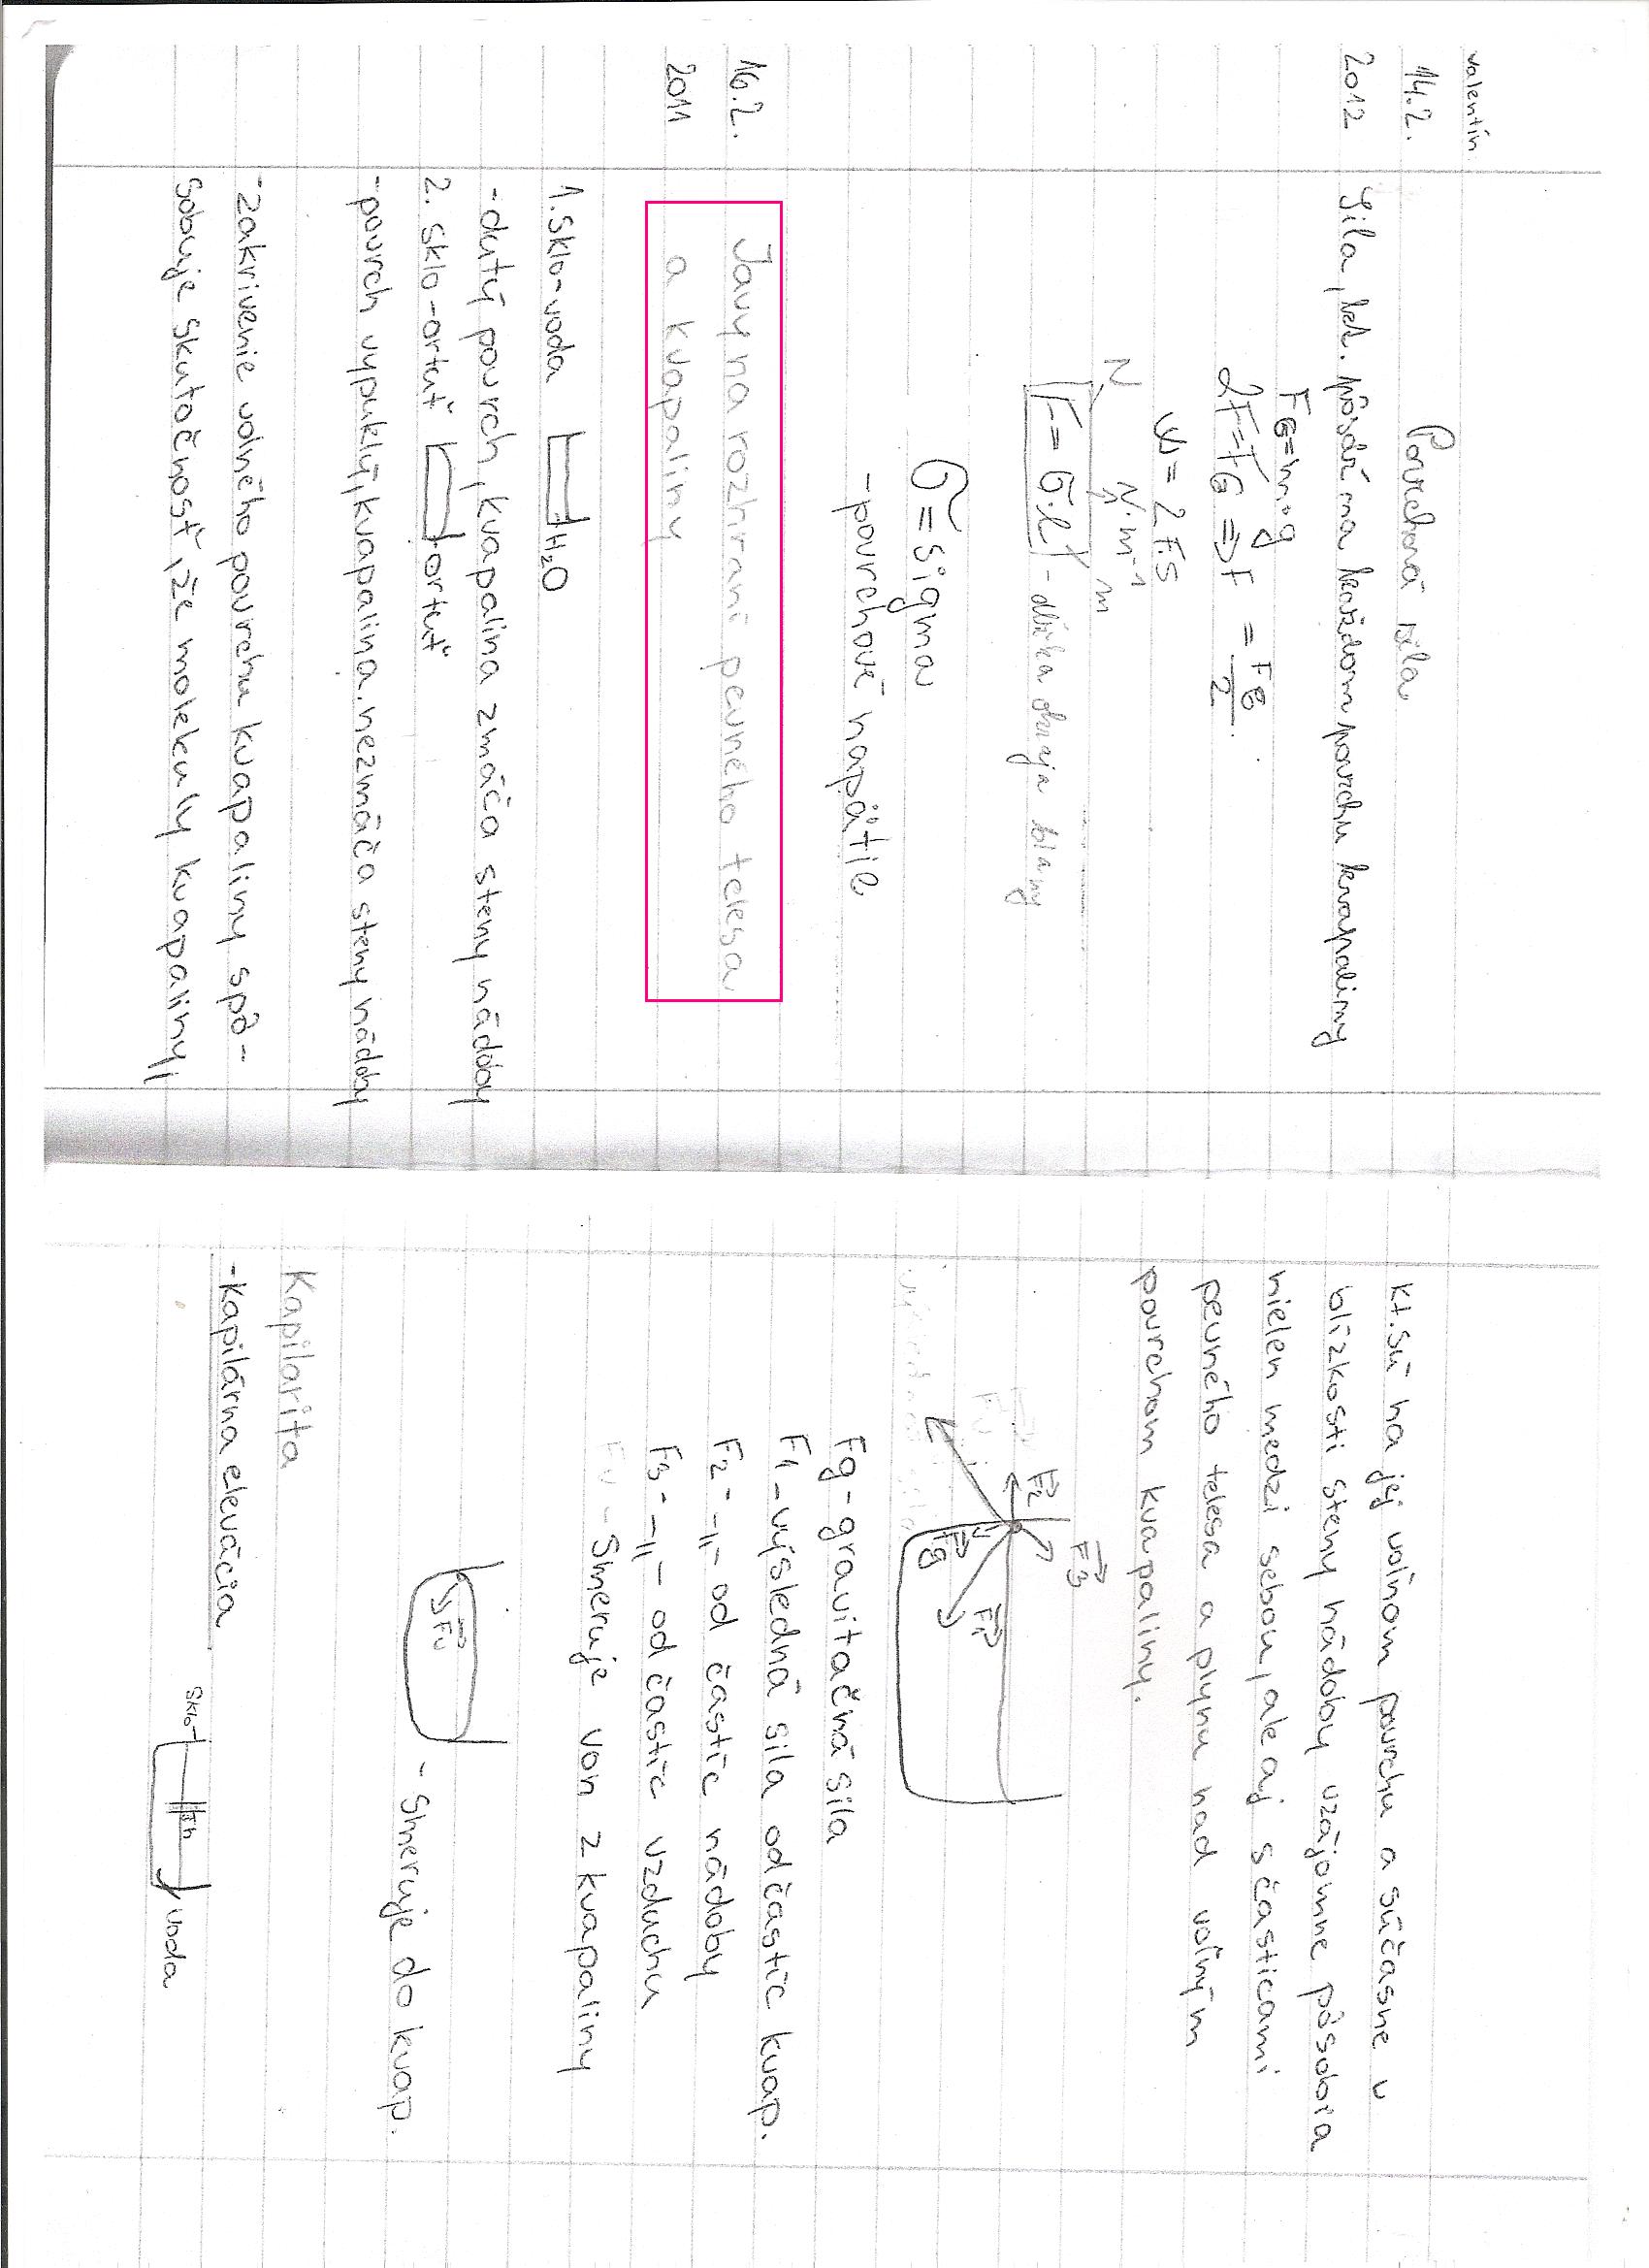 Valentín
14.2.
2012
Povrchová sila
Sila, kt. pôsobí na každom povrchu kvapaliny
FG=m·g
2F=FG ⇒ F = FG/2
W = 2F.S
N N·m⁻¹ m
F = σ·l - dĺžka okraja blany
σ = sigma
- povrchové napätie
16.2.
2011
Javy na rozhraní pevného telesa
a kvapaliny
1. sklo-voda H₂O
- dutý povrch, kvapalina zmáča steny nádoby
2. sklo-ortuť ortuť
- povrch vypuklý, kvapalina nezmáča steny nádoby
- zakrivenie voľného povrchu kvapaliny spô-
sobuje skutočnosť, že molekuly kvapaliny,
kt. sú na jej voľnom povrchu a súčasne v
blízkosti steny nádoby vzájomne pôsobia
nielen medzi sebou, ale aj s časticami
pevného telesa a plynu nad voľným
povrchom kvapaliny.
F2 F3
Fg F1
Fg - gravitačná sila
F1 - výsledná sila od častíc kvap.
F2 - -||- od častíc nádoby
F3 - -||- od častíc vzduchu
Fv - Smeruje von z kvapaliny
Fv - Smeruje do kvap.
Kapilarita
- Kapilárna elevácia
sklo h voda